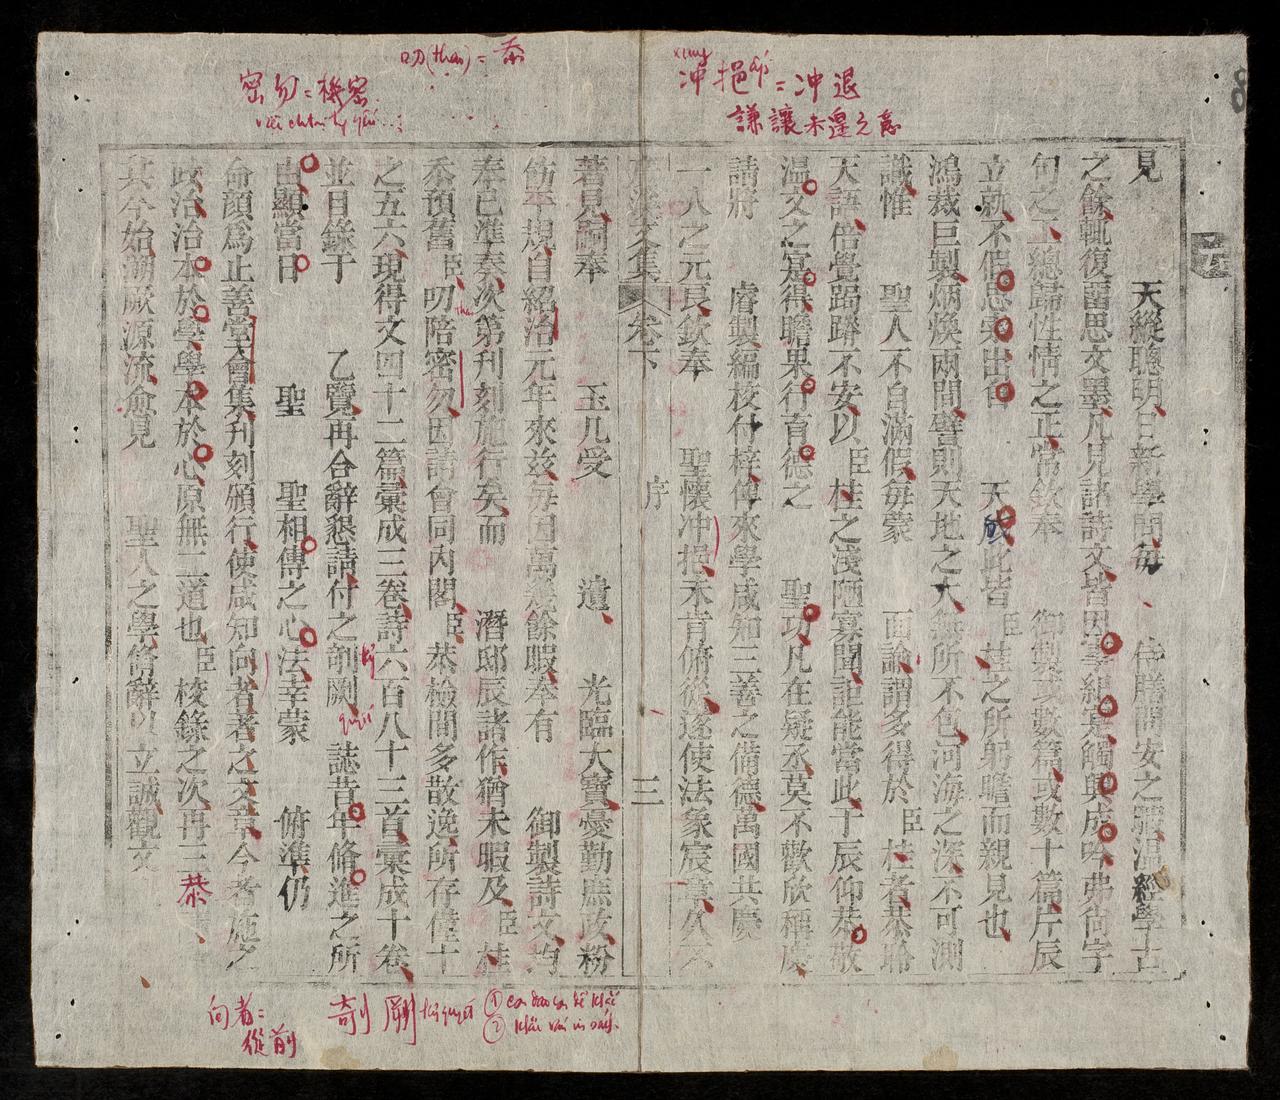 冲挹 = 冲退
謙讓未遑之意
叨(thao) = 忝
密勿 = 機密
見　天縱聰明日新學問毎　侍膳問安之暇溫經學古
之餘輒復畱思文墨凡見諸詩文皆因事紀寔觸興成吟弗尙字
句之工總歸性情之正常欽奉　御製或數篇或數十篇片辰
立就不假思索出自　天成此皆臣桂之所躬瞻而親見也
鴻裁巨製炳煥兩間譬則天地之大無所不包河海之深不可測
識惟　聖人不自滿假毎蒙　面諭謂多得於臣桂者恭聆
天語倍覺跼蹐不安以臣桂之淺陋寡聞詎能當此于辰仰恭敬
溫文之寔得瞻果行育德之　聖功凡在疑丞莫不歡欣稱慶
請將　睿製編校付梓俾來學咸知三善之備德萬國共慶
一人之元良欽奉　聖懷冲挹未肯俯從遂使法象宸章久玄
文集　卷下　序　三
著見嗣奉　玉几受　遺　光臨大寶憂勤庶政粉
飭平規自紹治元年來玆毎因萬幾餘暇奉有　御製詩文均
奉已準奏次第刊刻施行矣而　潛邸辰諸作猶未暇及臣桂
忝預舊臣叨陪密勿因請會同內閣臣恭檢間多散逸所存僅十
之五六現得文四十二篇彙成三卷詩六百八十三首彙成十卷
並目錄于　乙覽再合辭懇請付之剞劂　誌昔年脩進之所
由顯當日　聖　聖相傳之心法幸蒙　俯準仍
命顏爲止善堂會集刊刻頒行使咸知向者著之文章今者施之
政治治本於學學本於心原無二道也臣校錄之次再三恭
其今始溯厥源流愈見　聖人之學脩辭以立誠觀文
向者 =
從前
剞劂
①
②